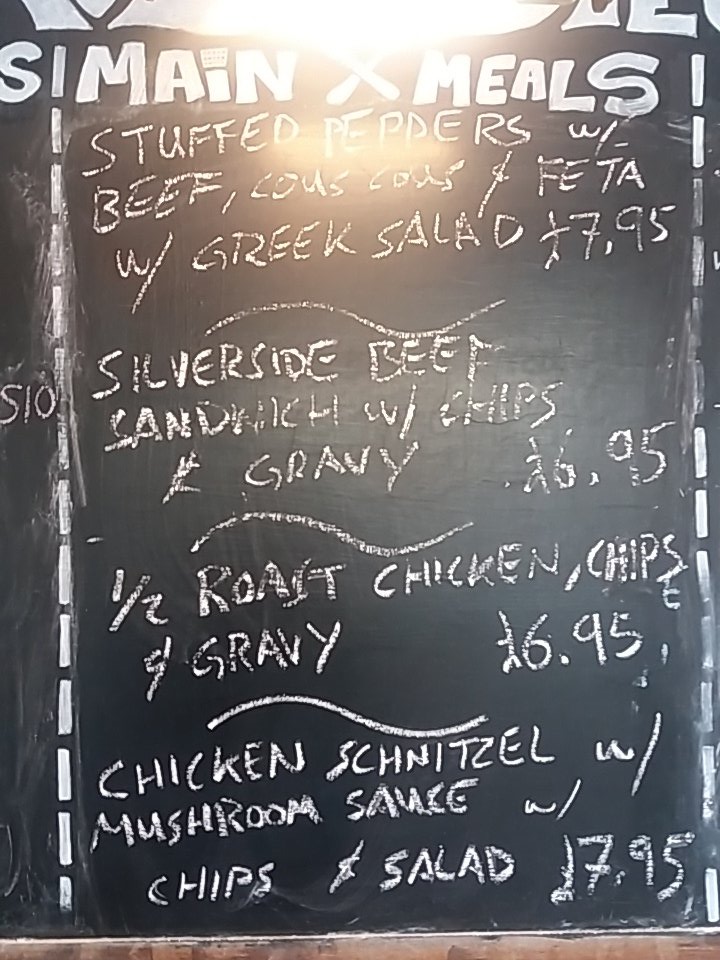 MAIN X MEALS
STUFFED PEPPERS w/
BEEF, COUS COUS & FETA
W/ GREEK SALAD £7.95
SILVERSIDE BEEF
SANDWICH w/ CHIPS
& GRAVY £6.95
1/2 ROAST CHICKEN, CHIPS
& GRAVY £6.95
CHICKEN SCHNITZEL w/
MUSHROOM SAUCE w/
CHIPS & SALAD £7.95